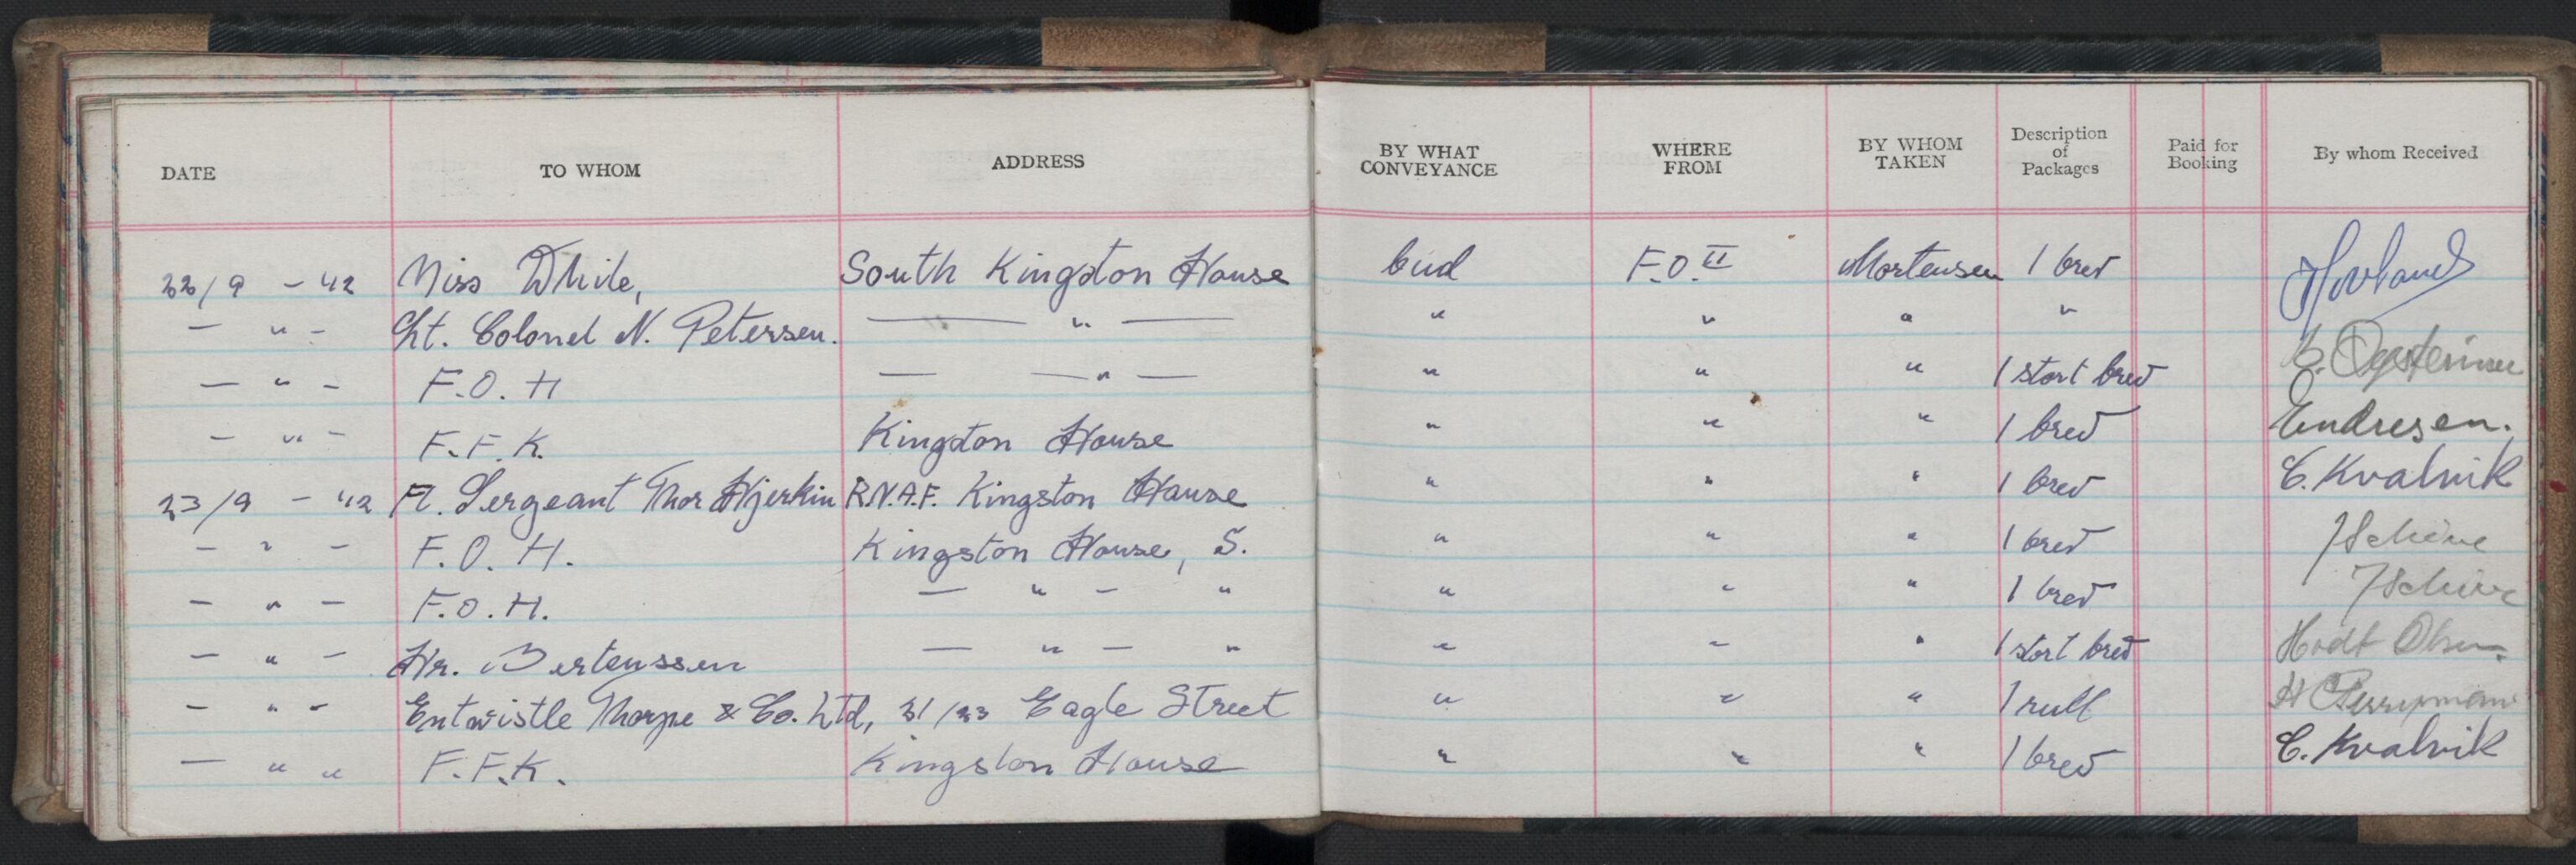 DATE TO WHOM ADDRESS BY WHAT CONVEYANCE WHERE FROM BY WHOM TAKEN Description of Packages Paid for Booking By whom Received
22/9 - 42 Miss White, South Kingston House bud F.O. II Mortensen 1 brev Hovland
— " - Lt. Colonel N. Petersen. — " — " " " "
— " - F.O.H — — " — " " " 1 stort brev
- " - F.F.K. Kingston House " " " 1 brev Endresen.
23/9 - 42 Fl. Sergeant Thor Hjerkin R.N.A.F. Kingston House " " " 1 brev C. Kvalvik
- " - F.O.H. Kingston House, S. " " " 1 brev
- " - F.O.H. — " - " " " " 1 brev
- " - Hr. Bertenssen — " — " " " " 1 stort brev Hodt Olsen.
- " - Entwistle Thorpe & Co. Ltd, 31/33 Eagle Street " " " 1 rull H Perryman
— " " F.F.K. Kingston House " " " 1 brev C. Kvalvik